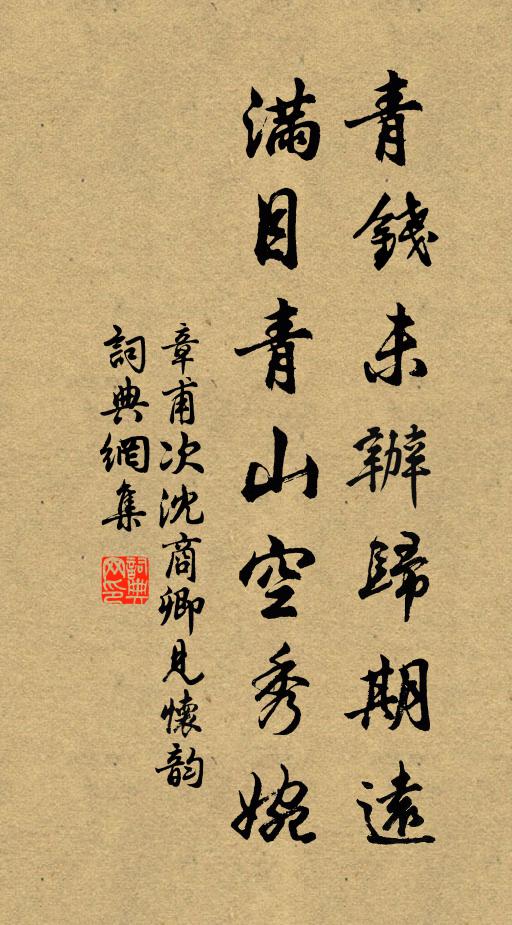 青錢未辦歸期遠
滿目青山空秀婉
章甫次沈商卿見懷韵
詞典網集
詞典网印